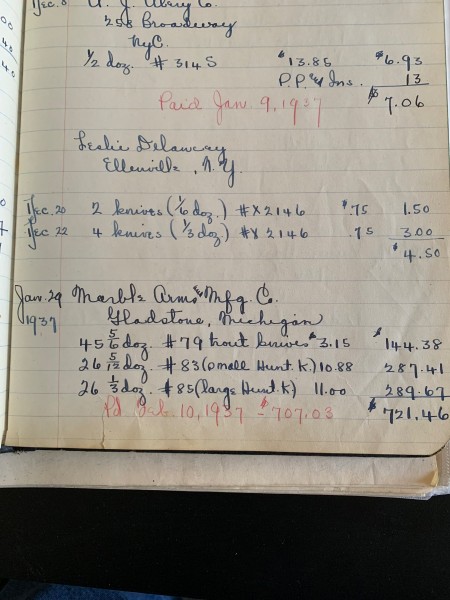 Dec. 8 A. J. Alery Co.
258 Broadway
NyC.
1/2 doz. # 314 S $13.85 $6.93
P.P. & Ins. 13
Paid Jan. 9, 1937 $7.06
Leslie Delawcay
Ellenville, N.Y.
Dec. 20 2 knives (1/6 doz.) # X 2146 $.75 1.50
Dec 22 4 knives (1/3 doz) # X 2146 .75 3.00
$4.50
Jan. 29 Marble Arms & Mfg. Co.
1937 Gladstone, Michigan
45 5/6 doz. # 79 trout knives $3.15 $144.38
26 5/12 doz. # 83 (small Hunt. K.) 10.88 287.41
26 1/3 doz. # 85 (large Hunt. K) 11.00 289.67
Pd Feb. 10, 1937 - $707.03 $721.46